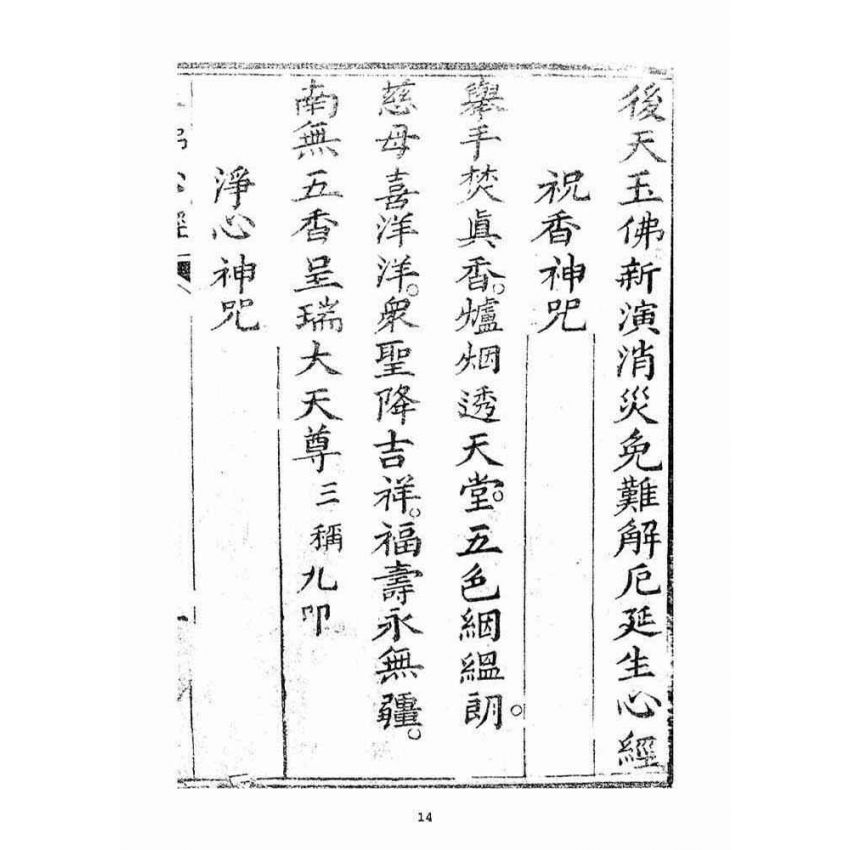 後天玉佛新演消災免難解厄延生心經
祝香神咒
舉手焚眞香。爐烟透天堂。五色絪縕朗。
慈母喜洋洋。衆聖降吉祥。福壽永無疆。
南無五香呈瑞大天尊 三稱九叩
淨心神咒
心經
一
14